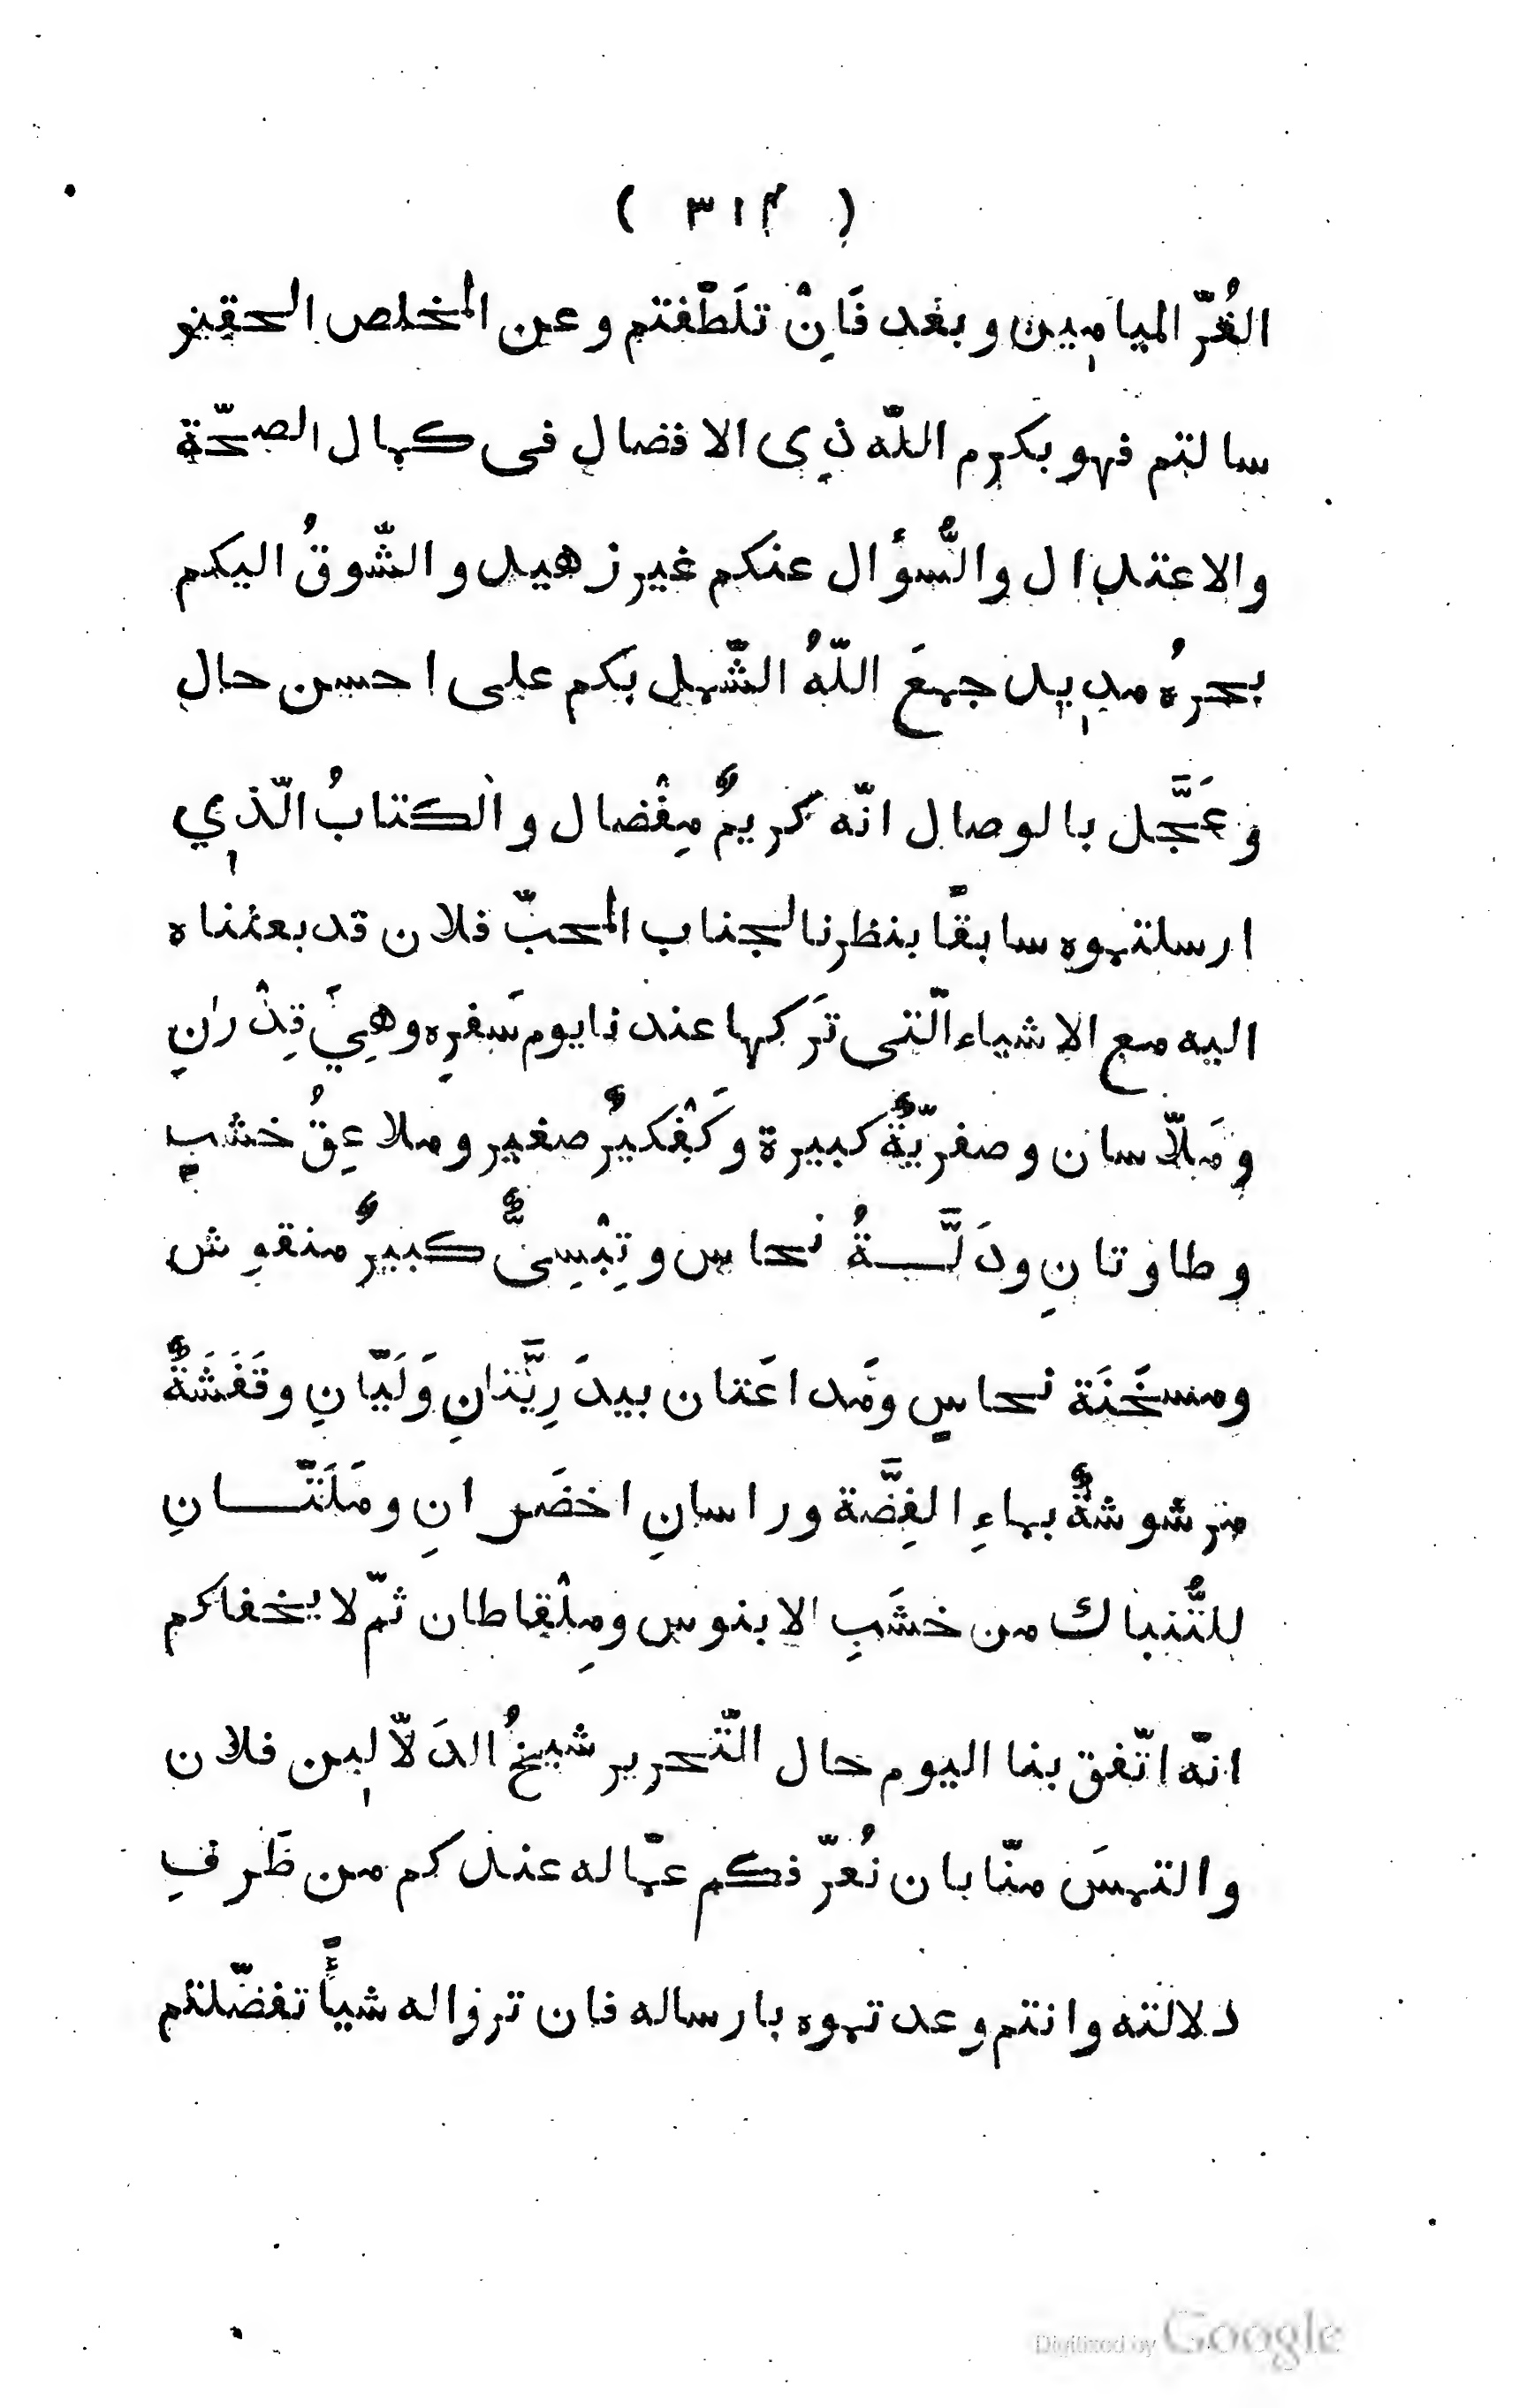 ( ٣١۴ )
الغُرّ الميامِين وبعْد فَاِنْ تلَطّفتم وعن المخلص الحقير
سالتم فهو بكرم اللّه ذي الافضال في كمال الصحّة
والاعتدال والسُّؤال عنكم غير زهيد والشّوقُ اليكم
بحرُه مديد جمعَ اللّهُ الشّمل بكم على احسن حال
وعَجَّل بالوصال انّه كريمٌ مِفْضال والْكتابُ الّذي
ارسلتموه سابقًا بنظرنا لجناب المحبّ فلان قد بعثناه
اليه مع الاشياء الّتى تَركها عندنا يوم سَفرِه وهِيَ قِدْرانِ
ومَلّاسان وصفريّةٌ كبيرة وكَفْكيرٌ صغير وملاعِقُ خشبٍ
وطاوتانِ ودَلَّةُ نحاس وتِبْسِىٌّ كبيرٌ منقوش
ومسخَنَة نحاسٍ ومَداعَتان بيدَرِيَّتانِ وَلَيّانِ وقَفَشَةٌ
مرشوشةٌ بماءِ الفِضَّة وراسانِ اخضَرانِ ومَلَتّانِ
للتُّنباك من خشَبِ الابنوس ومِلْقاطان ثمّ لا يخفاكم
انّه اتّفق بنا اليوم حال التّحرير شيخُ الدَلّالين فلان
والتمسَ منّا بان نُعرّفكم عمّا له عندكم من طَرفِ
دلالته وانتم وعدتموه بارساله فان تروا له شيأً تفضّلتم
Digitized by Google